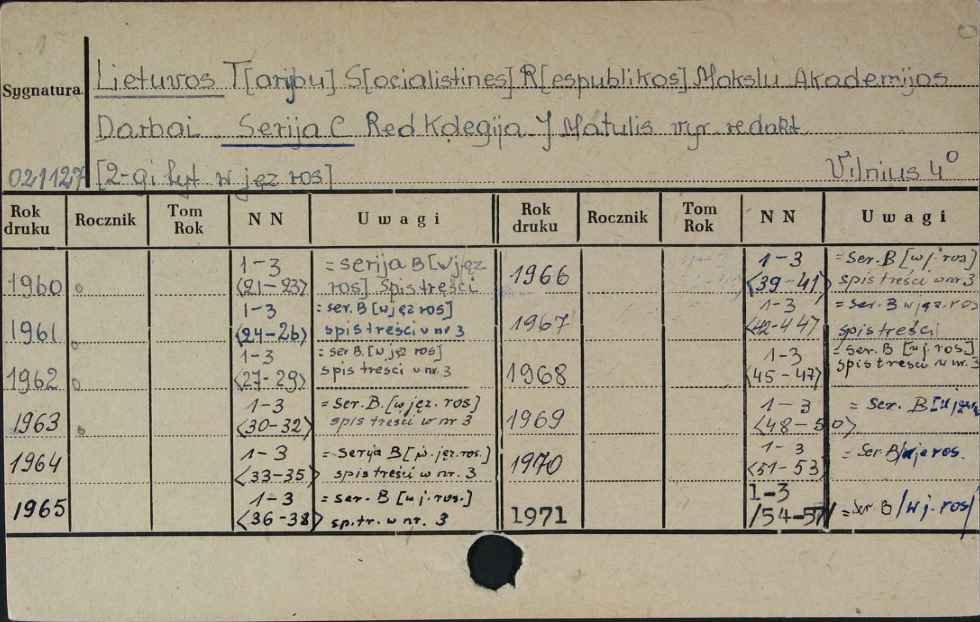 Sygnatura
Lietuvos T[arybu] S[ocialistines] R[espublikos] Mokslu Akademijos
Darbai. Serija C Red Kolegija. J Matulis vyr. redakt.
021127 [2-gi tyt w jęz ros] Vilnius 4°
Rok druku Rocznik Tom Rok NN Uwagi Rok druku Rocznik Tom Rok NN Uwagi
1960 1-3 <21-23> = serija B [w jęz ros] spis treści
1961 1-3 <24-26> = ser. B [w jęz ros] spis treści w nr 3
1962 1-3 <27-29> = ser B. [w jęz ros] spis tresci w nr. 3
1963 1-3 <30-32> = Ser. B. [w jęz. ros] spis treści w nr 3
1964 1-3 <33-35> = Seryja B [w. jęz. ros.] spis treści w nr. 3
1965 1-3 <36-38> = ser. B [w j. ros.] sp. tr. w nr. 3
1966 1-3 <39-41> = Ser. B [w j. ros] spis treści w nr 3
1967 1-3 <42-44> = Ser. B w jęz. ros spis treści
1968 1-3 <45-47> = ser. B [w j. ros.] spis treści w nr. 3
1969 1-3 <48-50> = Ser. B
1970 1-3 <51-53> = Ser B ros.
1971 1-3 /54-57/ = Ser. B /w j. ros/